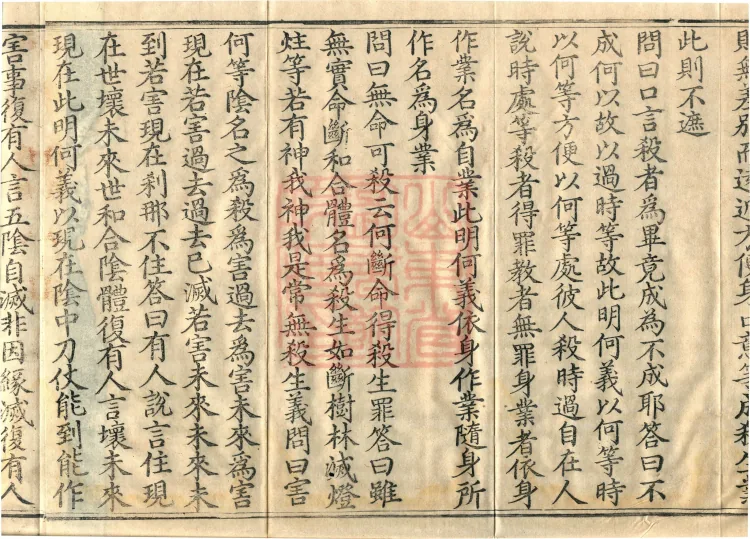 則無差別而遠近方便身口意等成殺生業
此則不遮
問曰口言殺者為畢竟成為不成耶答曰不
成何以故以過時等故此明何義以何等時
以何等方便以何等處彼人殺時過自在人
說時處等殺者得罪教者無罪身業者依身
作業名為自業此明何義依身作業隨身所
作名為身業
問曰無命可殺云何斷命得殺生罪答曰雖
無實命斷和合體名為殺生如斷樹林滅燈
炷等若有神我神我是常無殺生義問曰害
何等陰名之為殺為害過去為害未來為害
現在若害過去過去已滅若害未來未來未
到若害現在刹那不住答曰有人說言住現
在世壞未來世和合陰體復有人言壞未來
現在此明何義以現在陰中刀仗能到能作
害事復有人言五陰自滅非因緣滅復有人